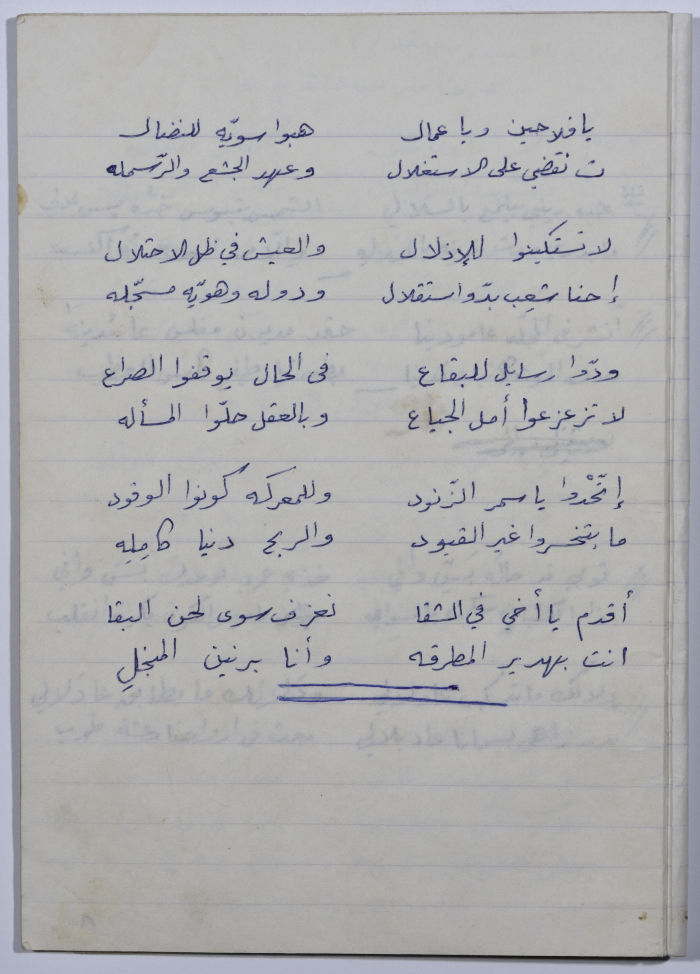 يا فلاحين ويا عمال هبوا سويّه للنضال
ت نقضي على الاستغلال وعهد الجشع والرّسمله
لا تستكينوا للإذلال والعيش في ظل الاحتلال
إحنا شعِب بدّو استقلال ودوله وهويّه مسجّله
ودّوا رسايل للبقاع في الحال يوقفوا الصراع
لا تزعزعوا أمل الجياع وبالعقل حلّوا المسأله
إتّحْدوا يا سمر الزّنود وللمعركه كونوا الوقود
ما بتخسروا غير القيود والربح دنيا كامِلِه
أقدم يا أخي في الشقا نعزف سوى لحن البقا
انت بهدير المطرقه وأنا برنين المنجلِ
٨